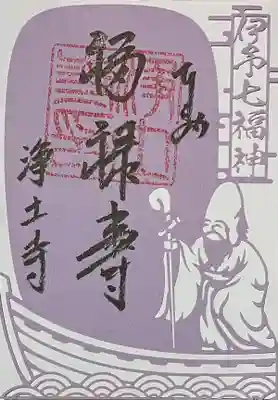 七福神
奉拝
福禄寿
浄土寺